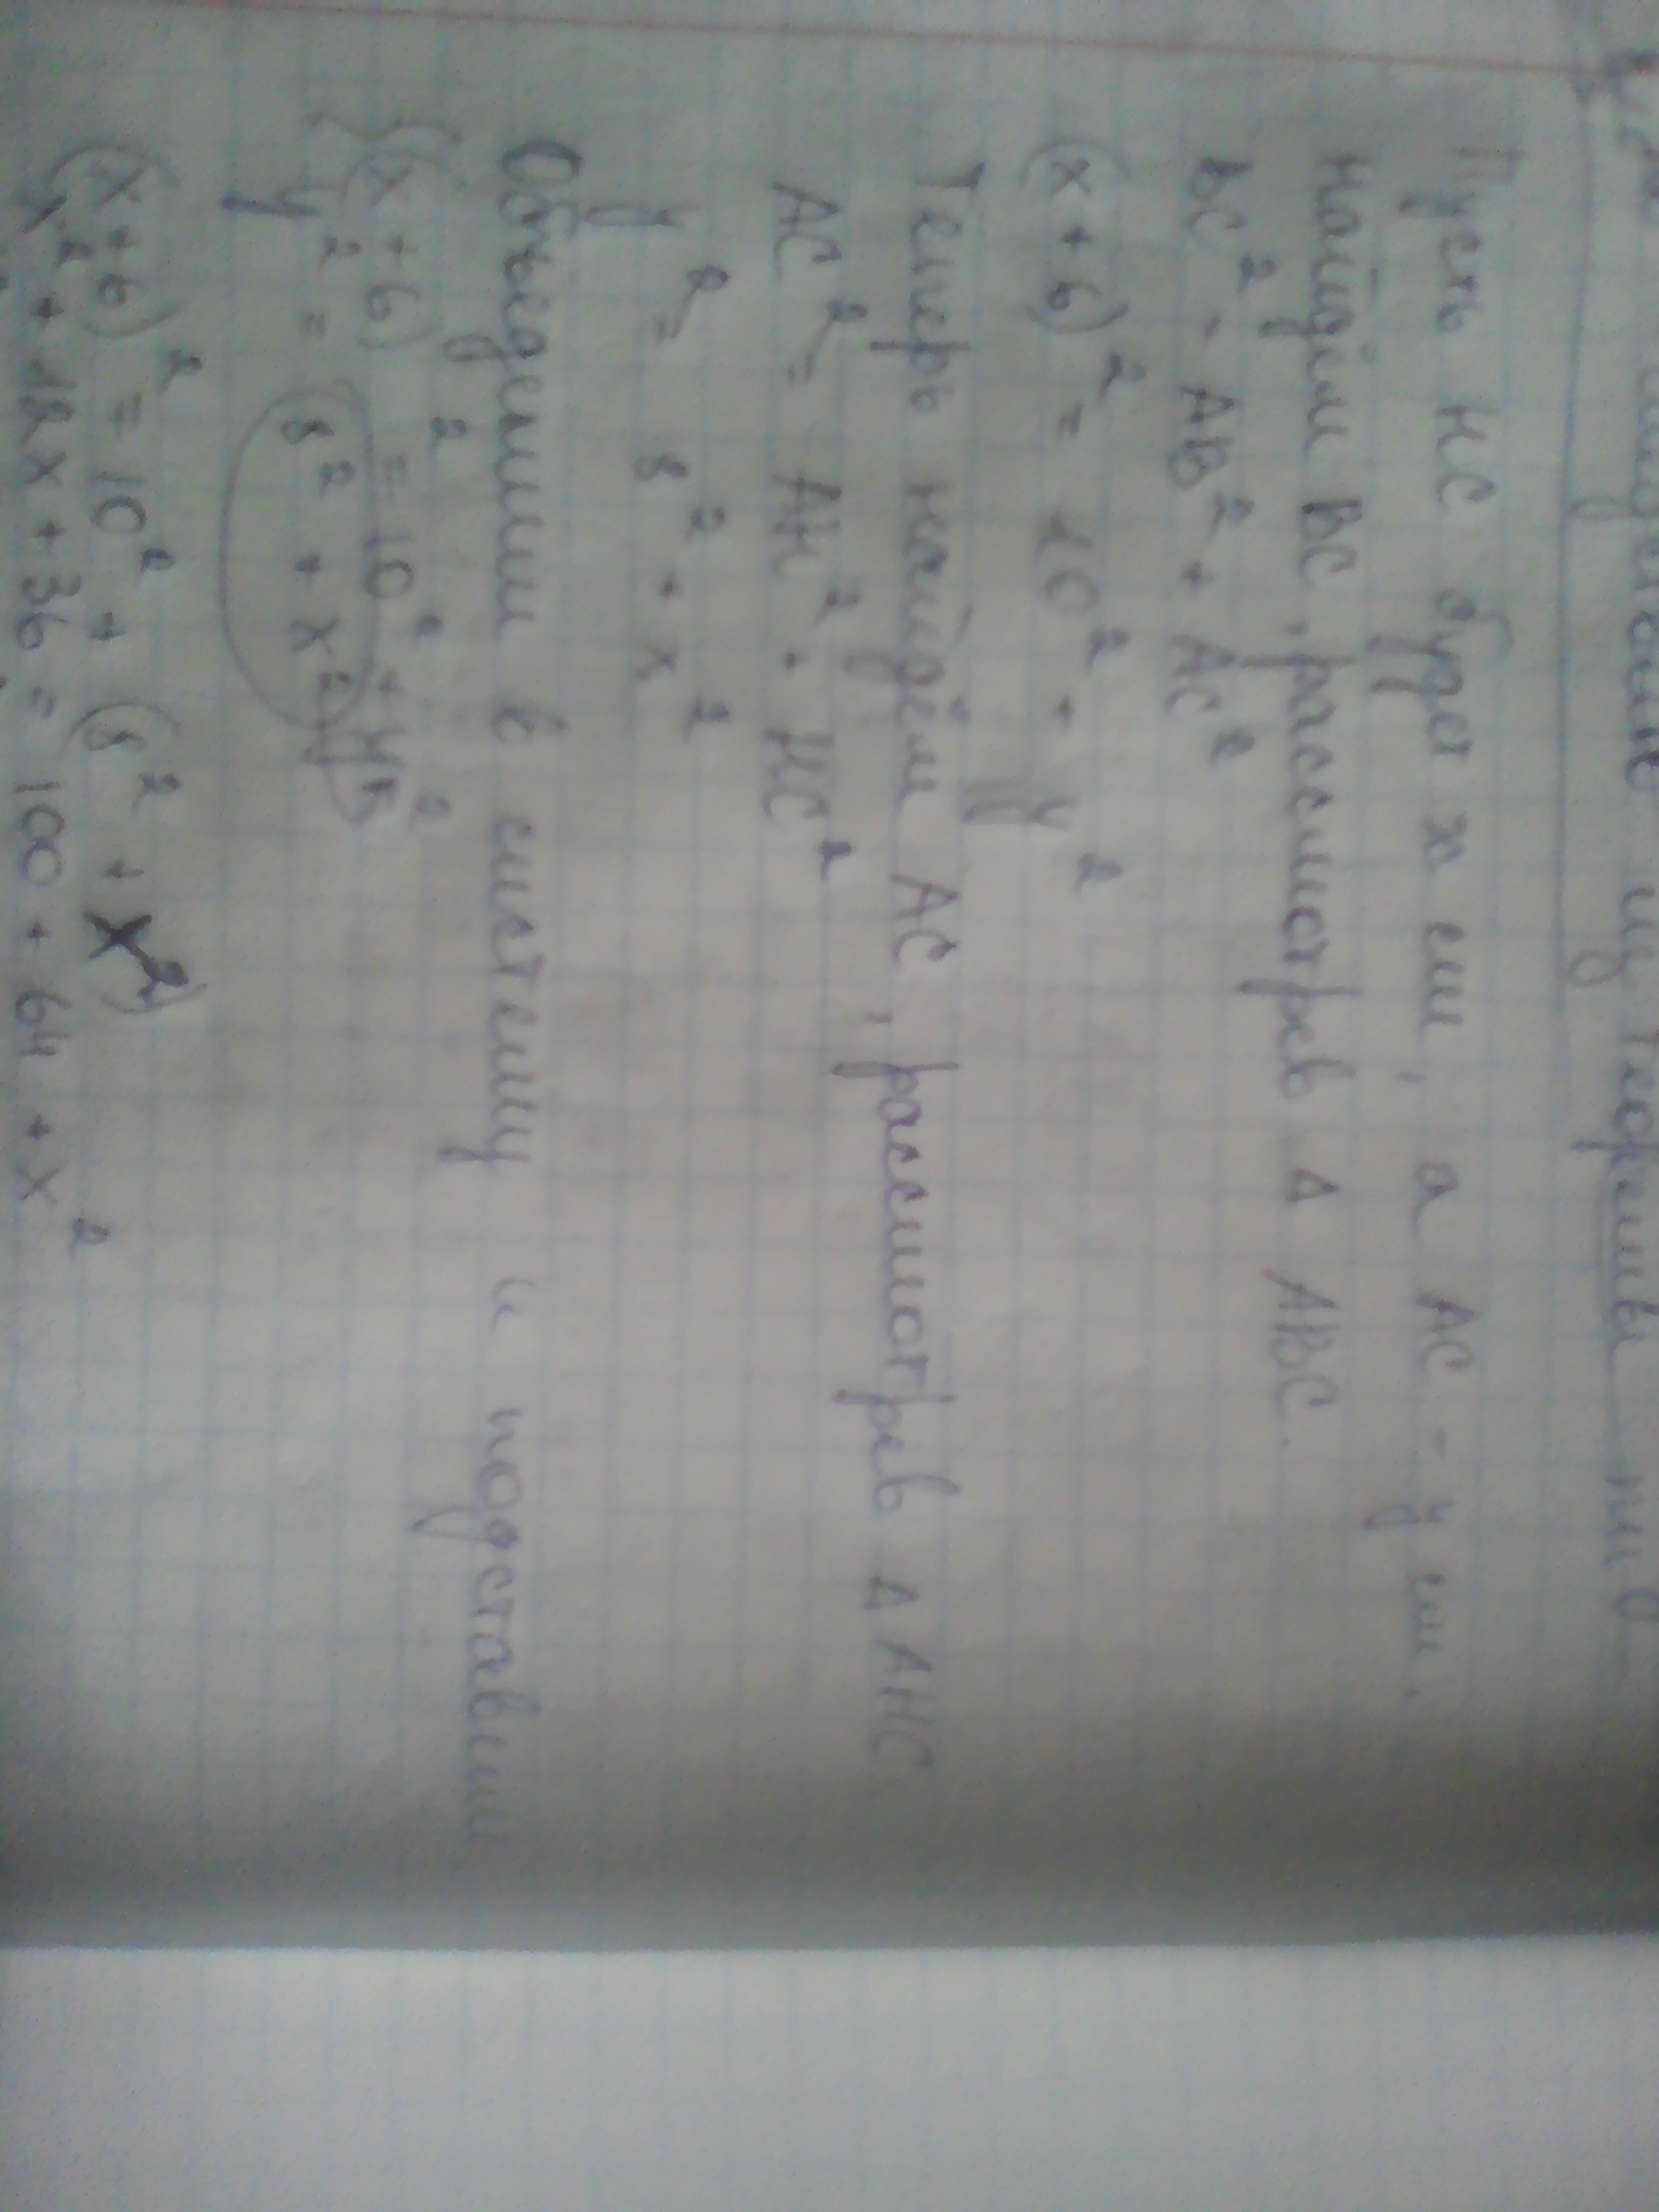 из теоремы
Пусть HC будет x см, а AC - y см.
найдём BC, рассмотрев Δ ABC.
BC² = AB² + AC²
(x + 6)² = 10² + y²
Теперь найдём AC, рассмотрев Δ AHC
AC² = AH² + HC²
y² = 8² + x²
Объеденим в систему и подставим
(x + 6)² = 10² + y²
y² = 8² + x²
(x + 6)² = 10² + (8² + x²)
x² + 12x + 36 = 100 + 64 + x²